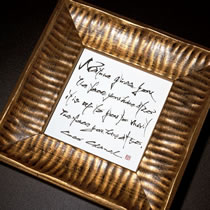 Nature gives you
the face you have at
it is up to you to merit
the face you have at
Coco Chanel